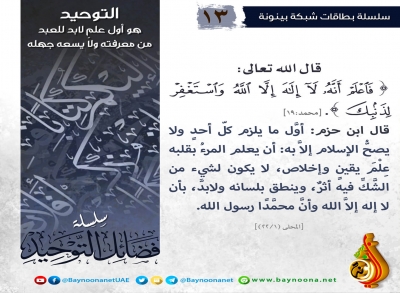 سلسلة بطاقات شبكة بينونة
١٣
التوحيد
هو أول علم لابد للعبد
من معرفته ولا يسعه جهله
قال الله تعالى:
﴿ فَٱعۡلَمۡ أَنَّهُۥ لَآ إِلَٰهَ إِلَّا ٱللَّهُ وَٱسۡتَغۡفِرۡ
لِذَنۢبِكَ ﴾. [محمد:١٩]
قال ابن حزم: أوَّل ما يلزم كلَّ أحدٍ ولا
يصحُّ الإسلام إلا به: أن يعلم المرءُ بقلبه
عِلْمَ يقينٍ وإخلاص، لا يكون لشيء من
الشكِّ فيه أثرٌ، وينطق بلسانه ولابدَّ، بأن
لا إله إلا الله وأنَّ محمَّدًا رسول الله.
[المحلى (٢٢/١)]
سلسلة
فضائل التوحيد
Baynoonanet
BaynoonanetUAE
@Baynoonanet
www.baynoona.net